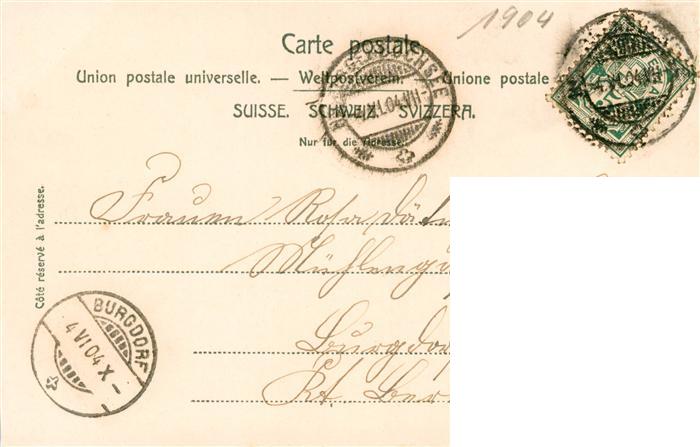 1904
Carte postale.
Union postale universelle. — Weltpostverein. — Unione postale
SUISSE. SCHWEIZ. SVIZZERA.
Nur für die Adresse.
Côté réservé à l'adresse.
Frauen Rosa
Mühleng
Burgdo
Kt. Ber
BURGDORF
4 VI 04 X –